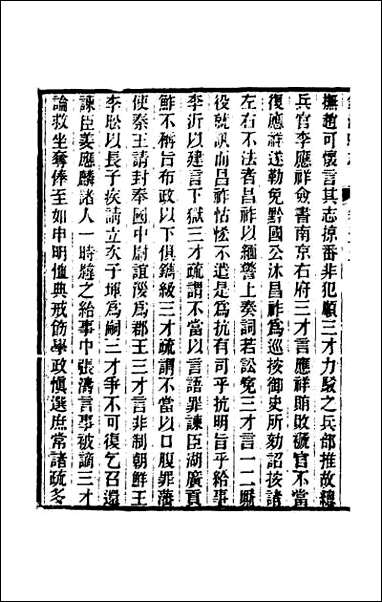 撫趙可懷言其志掠番非犯順三才力駁之兵部推故總
兵官李應祥僉書南京右府三才言應祥賄敗礦官不當
復應祥遂勒免黔國公沐昌祚為巡按御史所劾詔按諸
左右不法者昌祚以緬警上奏詞若訟寃三才言一二厮
役就訊而昌祚怙惓不遑是為抗有司乎抗明旨乎給事
李沂以建言下獄三才疏謂不當以言語罪諫臣湖廣貢
鮓不稱旨布政以下俱鐫級三才疏謂不當以口腹罪藩
使秦王請封奉國中尉誼㴋為郡王三才言非制朝鮮王
李昖以長子疾請立次子琿為嗣三才爭不可復乞召還
諫臣姜應麟諸人一時韙之給事中張濤言事被謫三才
論救坐奪俸至如申明䘏典戒飭學政慎選庶常諸疏多